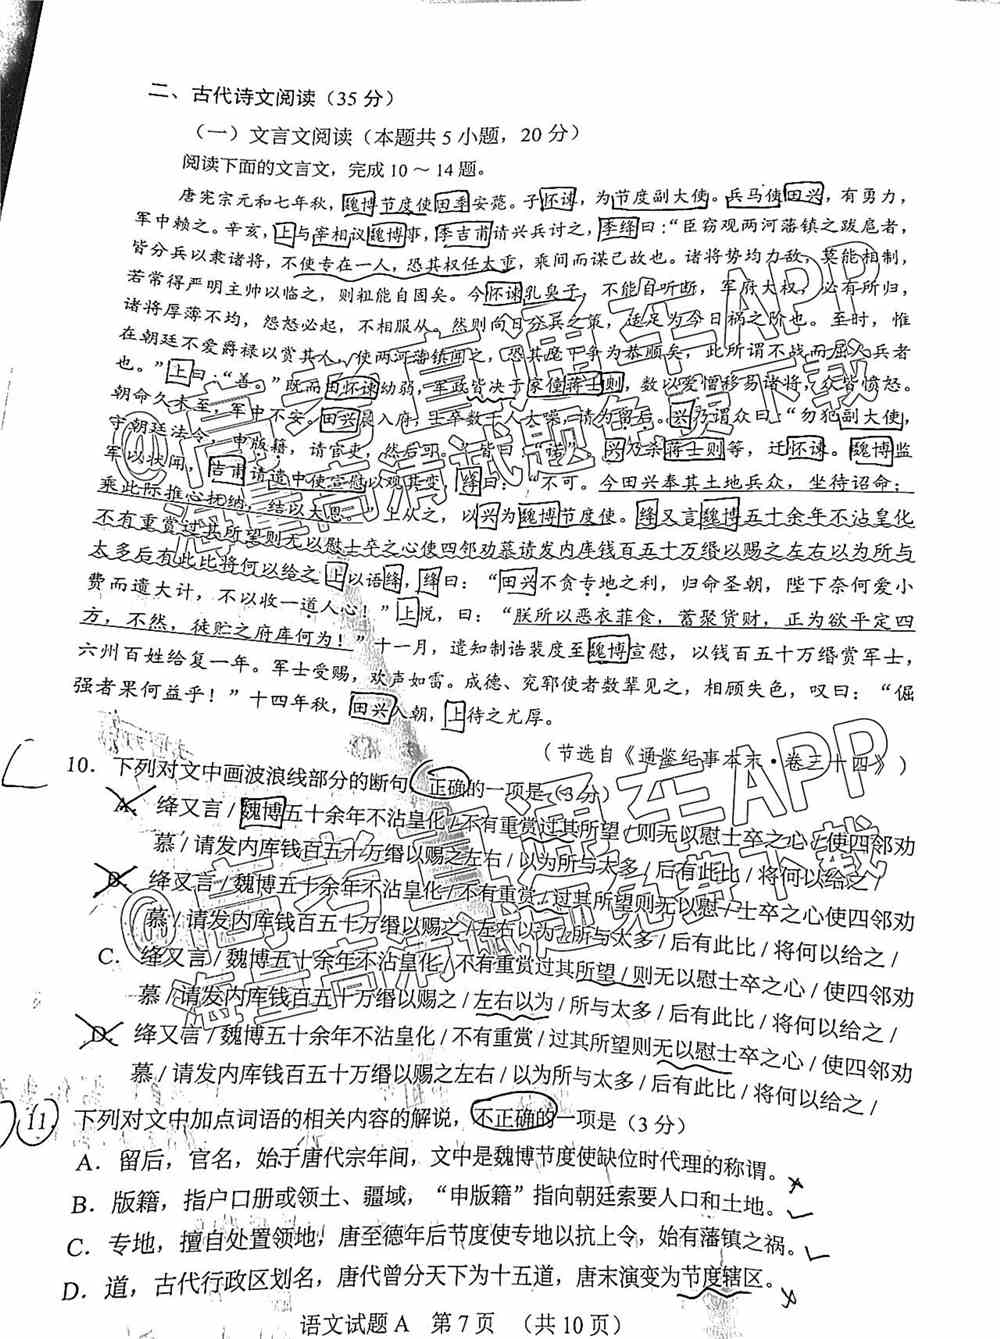 二、古代诗文阅读（35 分）
（一）文言文阅读（本题共 5 小题，20 分）
阅读下面的文言文，完成 10～14 题。
唐宪宗元和七年秋，魏博节度使田季安薨。子怀谏，为节度副大使。兵马使田兴，有勇力，
军中赖之。辛亥，上与宰相议魏博事，李吉甫请兴兵讨之，李绛曰：“臣窃观两河藩镇之跋扈者，
皆分兵以隶诸将，不使专在一人，恐其权任太重，乘间而谋己故也。诸将势均力敌，莫能相制，
若常得严明主帅以临之，则粗能自固矣。今怀谏乳臭子，不能自听断，军府大权，必有所归，
诸将厚薄不均，怨怒必起，不相服从。然则向日分兵之策，适足为今日祸之阶也。至时，惟
在朝廷不爱爵禄以赏其人，使两河藩镇闻之，恐其麾下争为恭顺矣，此所谓不战而屈人兵者
也。”上曰：“善。”既而田怀谏幼弱，军政皆决于家僮蒋士则，数以爱憎移易诸将，众皆愤怒。
朝命久未至，军中不安。田兴晨入府，士卒数千人大噪，请为留后。兴乃谓众曰：“勿犯副大使，
守朝廷法令，申版籍，请官吏，然后可。”皆曰：“诺”。兴乃杀蒋士则等，迁怀谏。魏博监
军以状闻，吉甫请遣中使宣慰以观其变，绛曰：“不可。今田兴奉其土地兵众，坐待诏命；
乘此际推心抚纳，结以大恩。”上从之，以兴为魏博节度使。绛又言魏博五十余年不沾皇化
不有重赏过其所望则无以慰士卒之心使四邻劝慕请发内库钱百五十万缗以赐之左右以为所与
太多后有此比将何以给之上以语绛，绛曰：“田兴不贪专地之利，归命圣朝，陛下奈何爱小
费而遗大计，不以收一道人心！”上悦，曰：“朕所以恶衣菲食，蓄聚货财，正为欲平定四
方，不然，徒贮之府库何为！”十一月，遣知制诰裴度至魏博宣慰，以钱百五十万缗赏军士，
六州百姓给复一年。军士受赐，欢声如雷。成德、兖郓使者数辈见之，相顾失色，叹曰：“倔
强者果何益乎！”十四年秋，田兴入朝，上待之尤厚。
（节选自《通鉴纪事本末·卷三十四》）
10．下列对文中画波浪线部分的断句，正确的一项是（3 分）
A．绛又言/魏博五十余年不沾皇化/不有重赏过其所望/则无以慰士卒之心/使四邻劝
慕/请发内库钱百五十万缗以赐之左右/以为所与太多/后有此比/将何以给之/
B．绛又言/魏博五十余年不沾皇化/不有重赏/过其所望则无以慰/士卒之心使四邻劝
慕/请发内库钱百五十万缗以赐之/左右以为所与太多/后有此比/将何以给之/
C．绛又言/魏博五十余年不沾皇化/不有重赏过其所望/则无以慰士卒之心/使四邻劝
慕/请发内库钱百五十万缗以赐之/左右以为/所与太多/后有此比/将何以给之/
D．绛又言/魏博五十余年不沾皇化/不有重赏/过其所望则无以慰士卒之心/使四邻劝
慕/请发内库钱百五十万缗以赐之左右/以为所与太多/后有此比/将何以给之/
11．下列对文中加点词语的相关内容的解说，不正确的一项是（3 分）
A．留后，官名，始于唐代宗年间，文中是魏博节度使缺位时代理的称谓。
B．版籍，指户口册或领土、疆域，“申版籍”指向朝廷索要人口和土地。
C．专地，擅自处置领地，唐至德年后节度使专地以抗上令，始有藩镇之祸。
D．道，古代行政区划名，唐代曾分天下为十五道，唐末演变为节度辖区。
语文试题 A 第 7 页 （共 10 页）